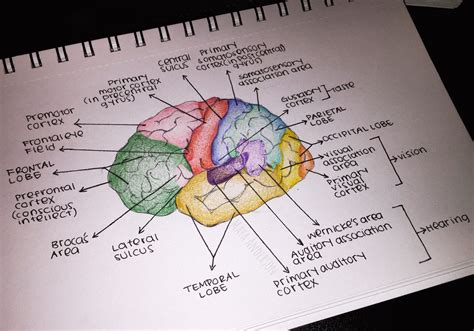 Central
sulcus
Primary
somatosensory
cortex (in postcentral)
gyrus)
somatosensory
association area
Primary
motor cortex
(in precentral
gyrus)
Gustatory
cortex
Taste
Premotor
cortex
Frontal eye
Field
PARIETAL
LOBE
OCCIPITAL LOBE
FRONTAL
LOBE
visual
association
area
Prefrontal
cortex
(conscious
intellect)
Primary
visual
cortex
vision
Broca's
Area
Lateral
sulcus
TEMPORAL
LOBE
Wernicke's area
Auditory association
area
Primary auditory
cortex
Hearing